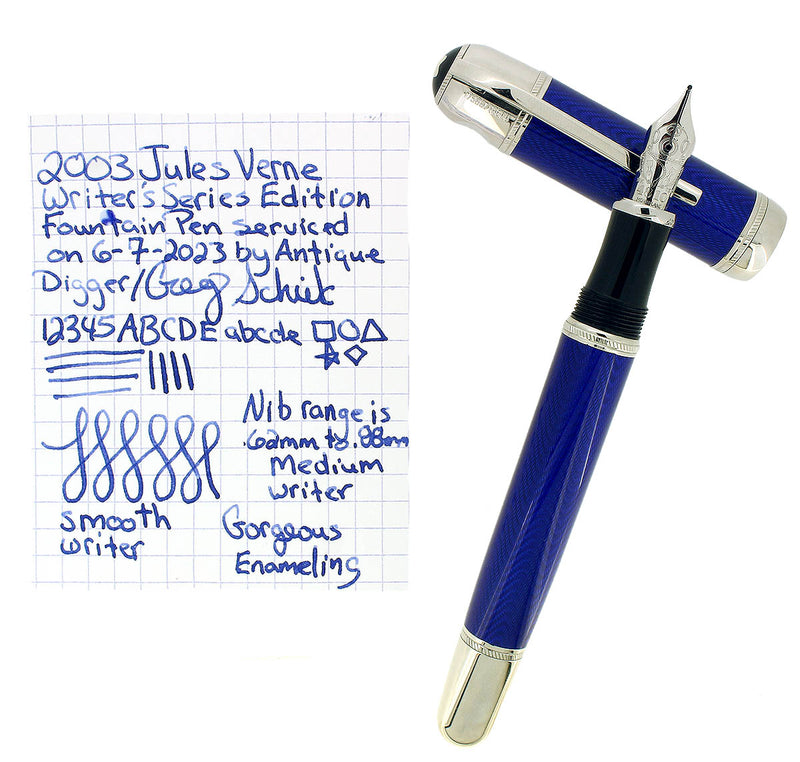 2003 Jules Verne
Writer's Series Edition
Fountain Pen serviced
on 6-7-2023 by Antique
Digger/Greg Schiek
12345 ABCDE abcde
Nib range is
.62mm to .88mm
Medium
writer
smooth
writer
Gorgeous
Enameling